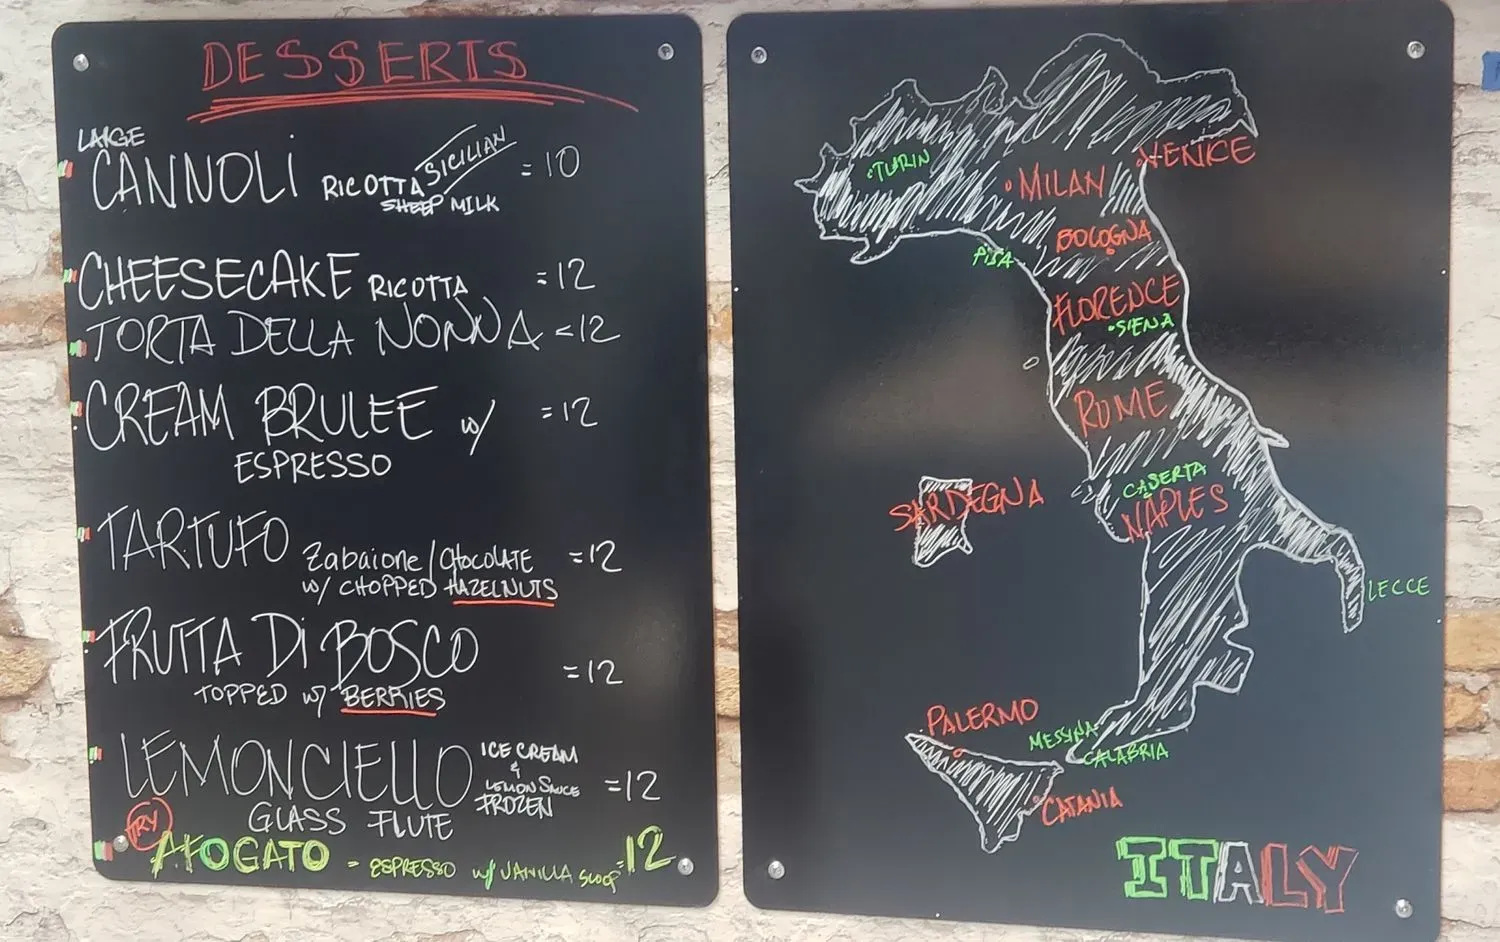 DESSERTS
LARGE
CANNOLI RICOTTA SICILIAN = 10
SHEEP MILK
CHEESECAKE RICOTTA = 12
TORTA DELLA NONNA = 12
CREAM BRULEE w/ = 12
ESPRESSO
TARTUFO Zabaione/CHOCOLATE = 12
w/ CHOPPED HAZELNUTS
FRUTTA Di BOSCO = 12
TOPPED w/ BERRIES
LEMONCIELLO ICE CREAM
&
LEMON SAUCE = 12
FROZEN
GLASS FLUTE
TRY
AFOGATO = ESPRESSO w/ VANILLA SCOOP = 12
VENICE
TURIN
MILAN
BOLOGNA
PISA
FLORENCE
SIENA
ROME
CASERTA
SARDEGNA
NAPLES
LECCE
PALERMO
MESSINA
CALABRIA
CATANIA
ITALY